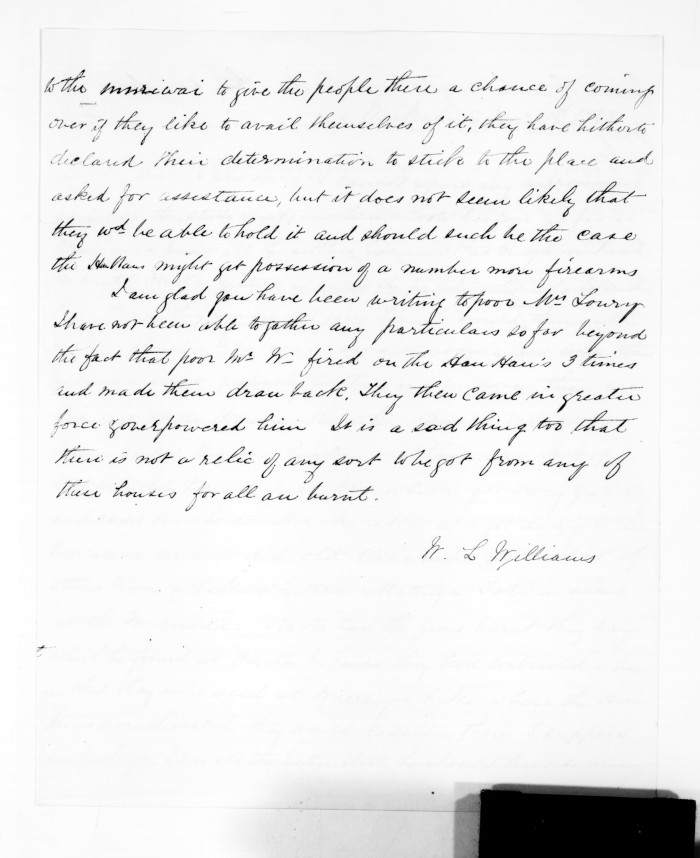 to the muriwai to give the people there a chance of coming
over if they like to avail themselves of it, they have hitherto
declared their determination to stick to the place and
asked for assistance, but it does not seem likely that
they wd be able to hold it and should such be the case
the Hauhaus might get possession of a number more firearms
I am glad you have been writing to poor Mrs Lowry
I have not been able to gather any particulars so far beyond
the fact that poor Mr W— fired on the Hau Hau's 3 times
and made them draw back. They then came in greater
force & overpowered him It is a sad thing too that
there is not a relic of any sort to be got from any of
these houses for all are burnt.
W. L Williams